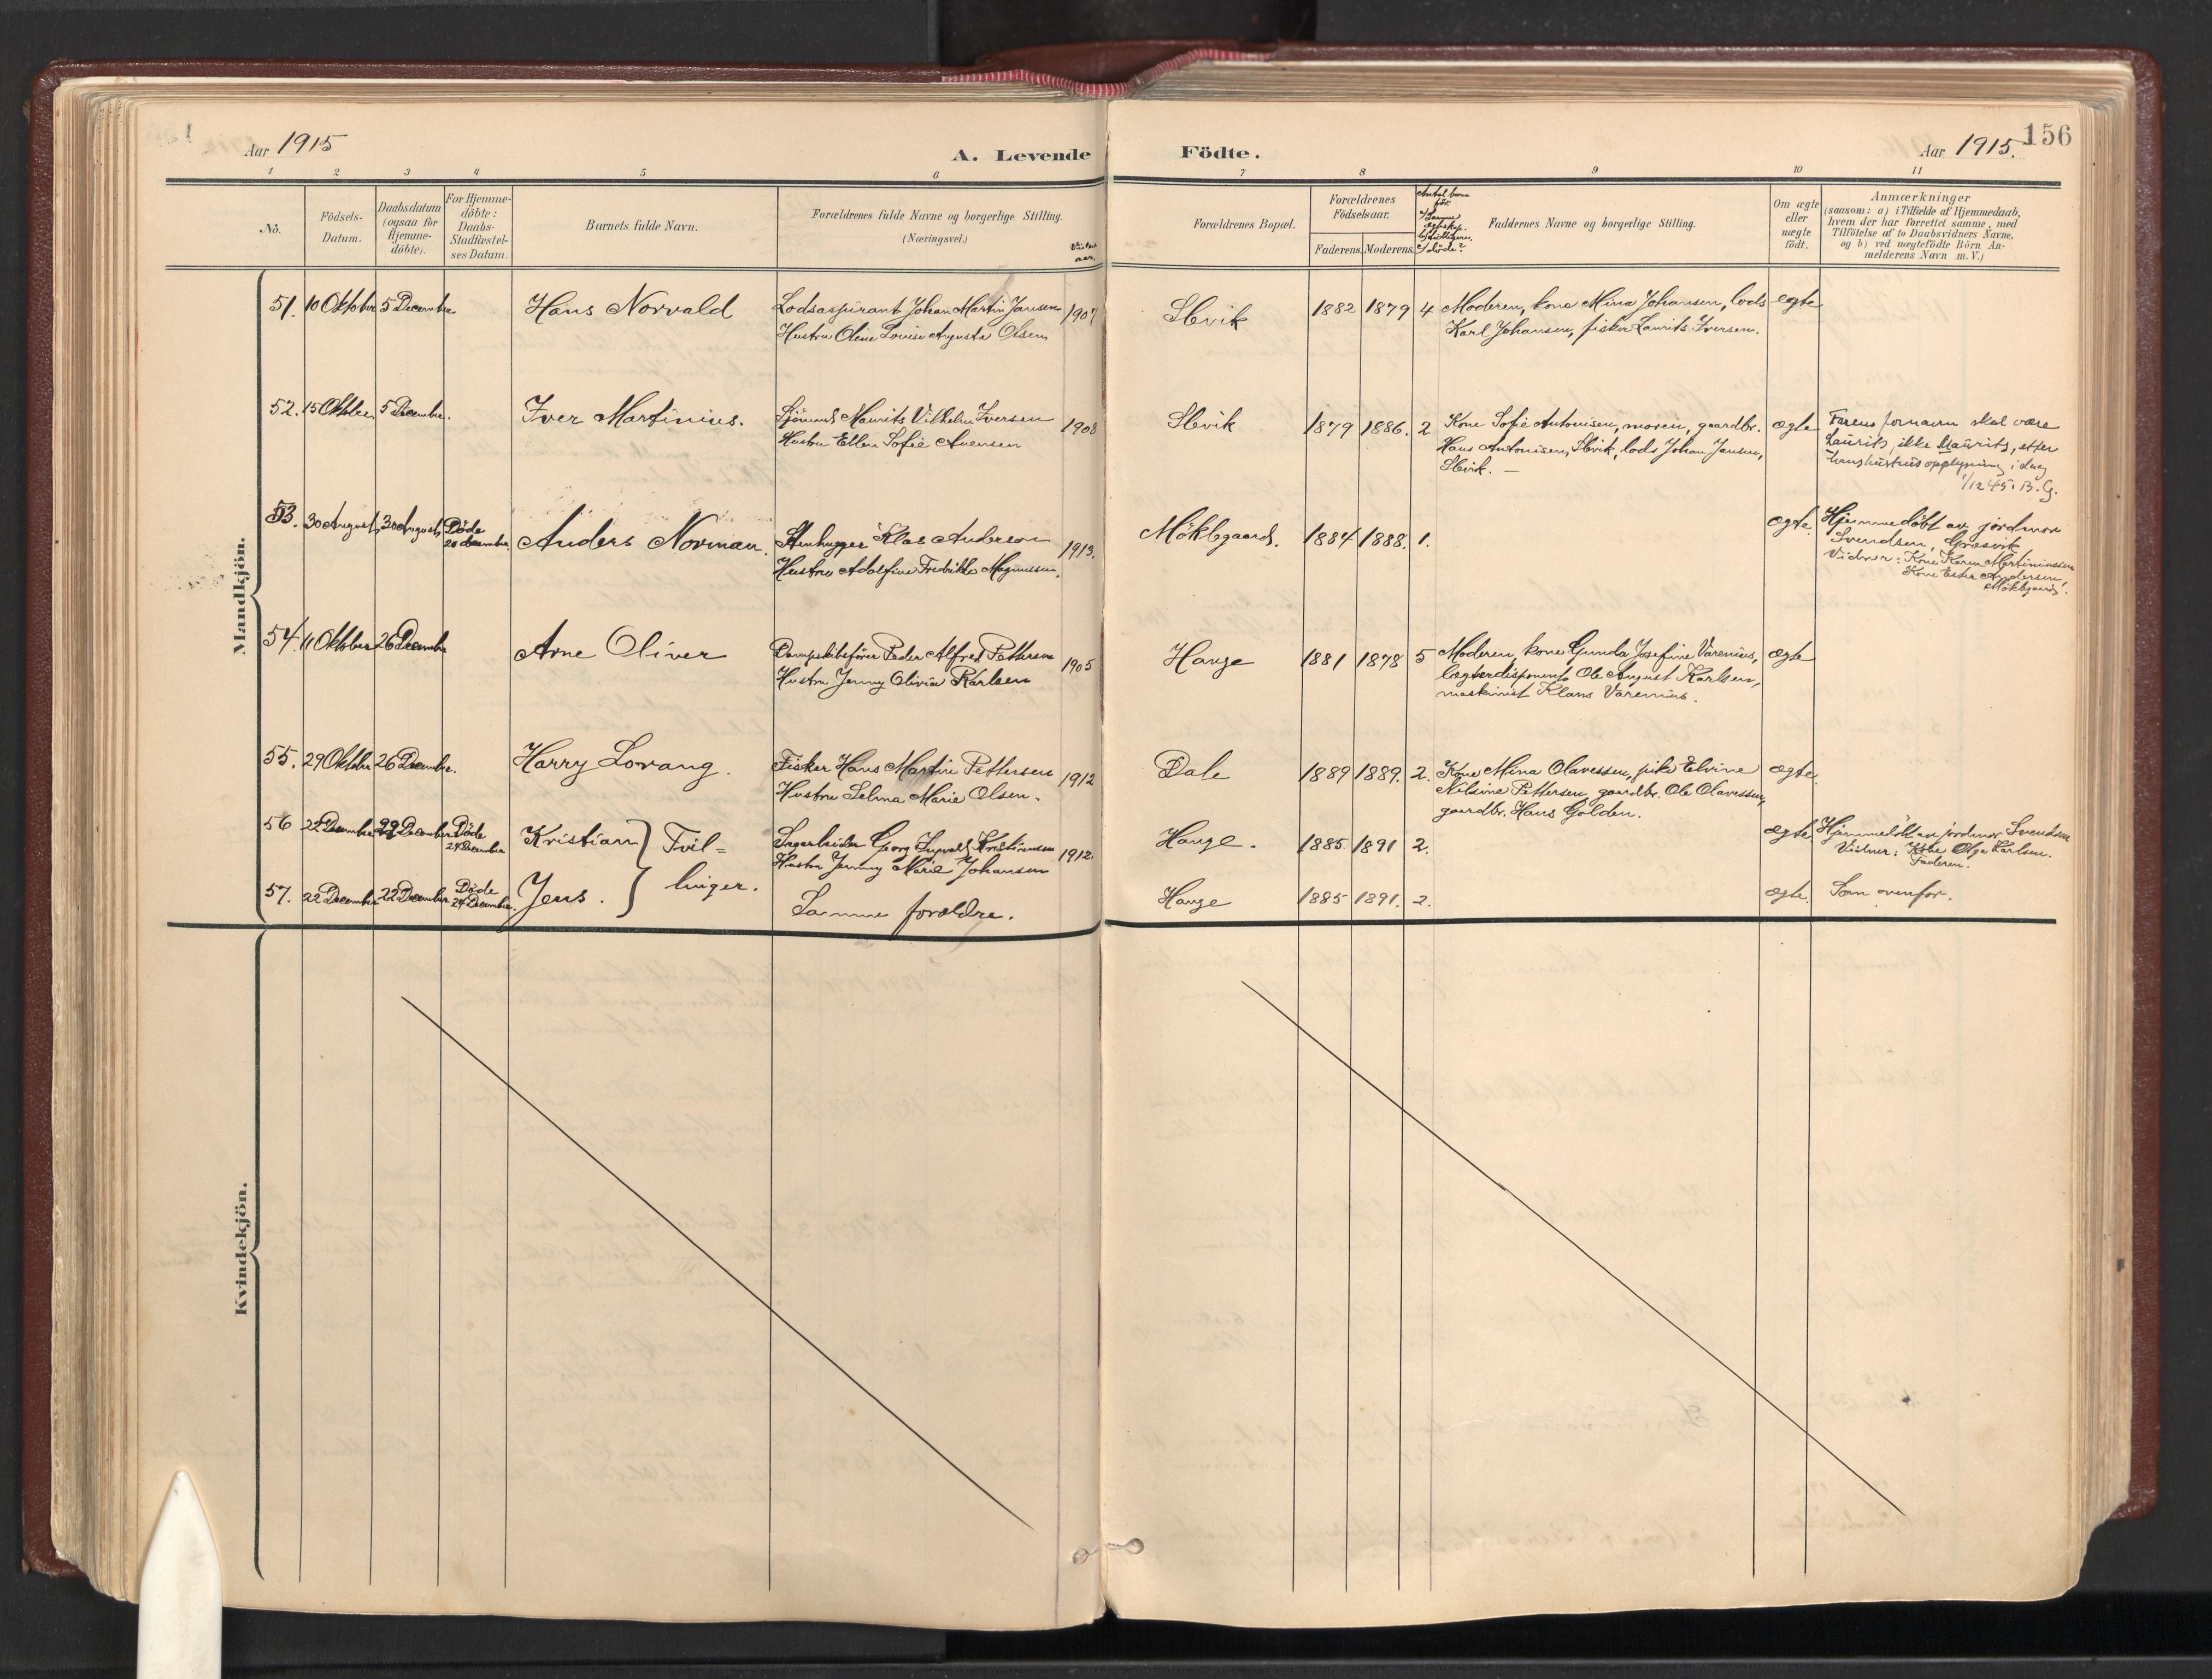 Aar 1915
A. Levende Födte.
Aar 1915.
156
1 2 3 4 5 6 7 8 9 10 11
No.
Födsels-
Datum.
Daabsdatum
(ogsaa för
Hjemme-
döbte).
For Hjemme-
döbte:
Daabs-
Stadfæstel-
ses Datum.
Barnets fulde Navn.
Forældrenes fulde Navne og borgerlige Stilling.
(Næringsvei.)
Vielses
aar.
Forældrenes Bopæl.
Forældrenes
Födselsaar.
Faderens. Moderens.
Antal barn
för
a) Samme
ægteskap.
b) tidligere.
c) döde?
Faddernes Navne og borgerlige Stilling.
Om ægte
eller
uægte
født.
Anmærkninger
(saasom: a) i Tilfælde af Hjemmedaab,
hvem der har forrettet samme, med
Tilföielse af to Daabsvidners Navne,
og b) ved uægtefödte Börn An-
melderens Navn m. V.)
Mandkjön.
51. 10 Oktober 5 December Hans Norvald Lodsaspirant Johan Martin Jansen 1907
Hustru Oline Louise Augusta Olsen
Slevik 1882 1879 4 Moderen, kone Mina Johansen, lods ægte
Karl Johansen, fisker Laurits Iversen.
52. 15 Oktober 5 December. Iver Martinius. Sjömand Maurits Vilhelm Iversen 1908
Hustru Ellen Sofie Auensen
Slevik 1879 1886. 2 Kone Sofie Antonisen, moren, gaardbr. ægte
Hans Antonisen, Slevik, lods Johan Jansen,
Slevik. —
Farens fornavn skal være
Laurits, ikke Maurits, efter
hans hustrus opplysning i dag
1/12 45. B.G.
53. 30 August 30 August Döde
20 december. Anders Norman. Stenhugger Klas Anderson 1913.
Hustru Adolfine Fredrikke Magnussen.
Möklegaard. 1884 1888. 1. ægte.
Hjemmedöbt av jordmor
Svendsen, Græsvik
Vidner: Kone Karen Martiniussen
Kone Ester Andersen,
Möklegaard.
54. 11 Oktober 26 December Arne Oliver Dampskibsfører Peder Alfred Pettersen 1905
Hustru Jenny Olivia Karlsen
Hauge 1881 1878 5 Moderen, kone Gunda Josefine Varenius, ægte
lægterdisponent Ole August Karlsen,
maskinist Klaus Varenius.
55. 29 Oktober 26 December. Harry Lorang. Fisker Hans Martin Pettersen 1912
Hustru Selma Marie Olsen.
Dale 1889 1889. 2. Kone Mina Olavessen, pike Elvine ægte.
Nilsine Pettersen, gaardbr. Ole Olavessen,
gaardbr. Hans Golden.
56 22 December 22 December Döde
24 December Kristian } Tvil-
Sagarbeider Georg Kristiansen 1912.
Hustru Jenny Marie Johansen
Hauge. 1885 1891 2. ægte.
Hjemmedöbt av jordmor Svendsen
Vidner: Kone Olga Karlsen.
Faderen.
57. 22 December 22 December Döde
24 December. Jens. } linger.
Samme forældre.
Hauge 1885 1891. 2. ægte. Som ovenfor.
Kvindekjön.